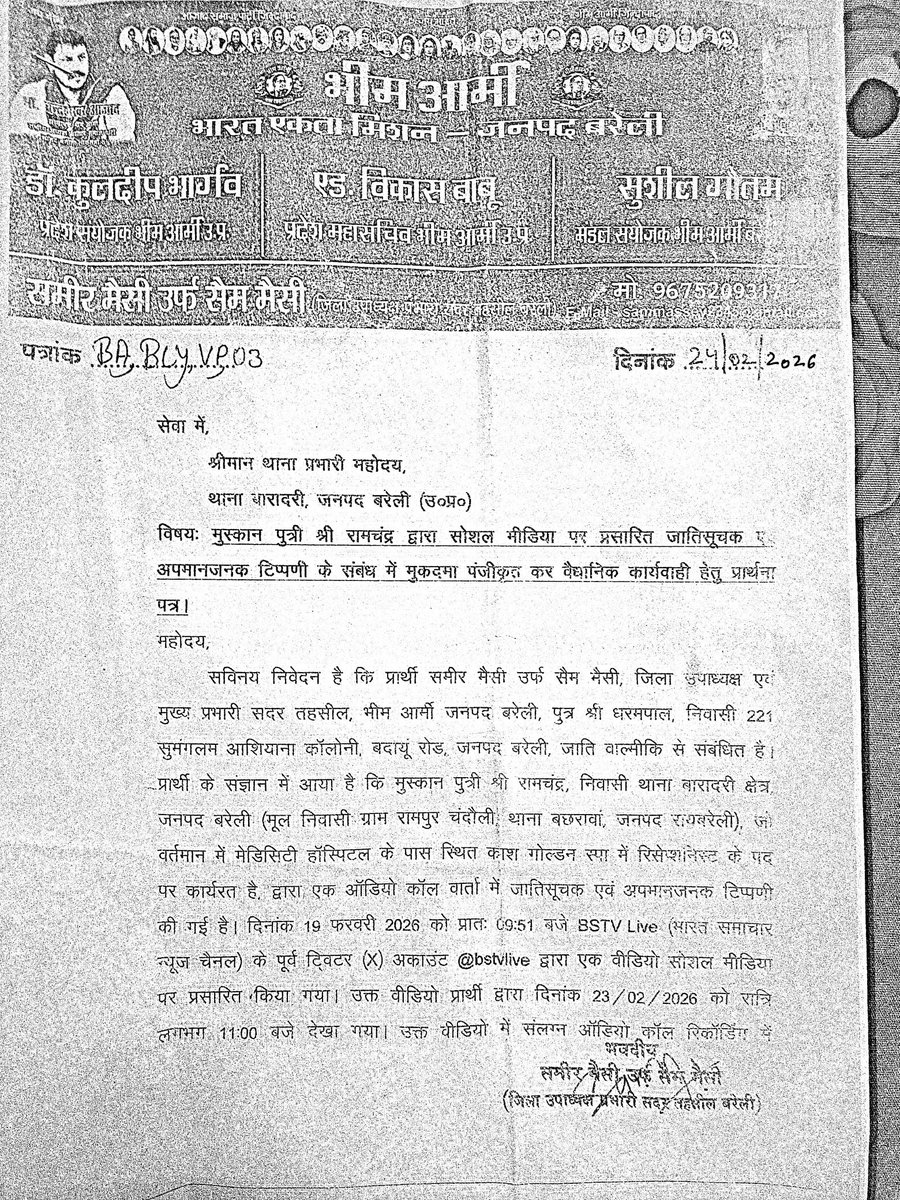 भीम आर्मी
भारत एकता मिशन – जनपद बरेली
डॉ. कुलदीप भार्गव
प्रदेश संयोजक भीम आर्मी उ.प्र.
एड. विकास बाबू
प्रदेश महासचिव भीम आर्मी उ.प्र.
सुशील गौतम
मंडल संयोजक भीम आर्मी
समीर मैसी उर्फ सैम मैसी
मो. 967520931
पत्रांक BA, BLY, VP, 03
दिनांक 24/02/2026
सेवा में,
श्रीमान थाना प्रभारी महोदय,
थाना बारादरी, जनपद बरेली (उ०प्र०)
विषयः मुस्कान पुत्री श्री रामचंद्र द्वारा सोशल मीडिया पर प्रसारित जातिसूचक
अपमानजनक टिप्पणी के संबंध में मुकदमा पंजीकृत कर वैधानिक कार्यवाही हेतु प्रार्थना
पत्र।
महोदय,
सविनय निवेदन है कि प्रार्थी समीर मैसी उर्फ सैम मैसी, जिला उपाध्यक्ष एवं
मुख्य प्रभारी सदर तहसील, भीम आर्मी जनपद बरेली, पुत्र श्री धरमपाल, निवासी 221
सुमंगलम आशियाना कॉलोनी, बदायूं रोड, जनपद बरेली, जाति वाल्मीकि से संबंधित है।
प्रार्थी के संज्ञान में आया है कि मुस्कान पुत्री श्री रामचंद्र, निवासी थाना बारादरी क्षेत्र,
जनपद बरेली (मूल निवासी ग्राम रामपुर चंदौली, थाना बछरावां, जनपद रायबरेली), जो
वर्तमान में मेडिसिटी हॉस्पिटल के पास स्थित काश गोल्डन स्पा में रिसेप्शनिस्ट के पद
पर कार्यरत है, द्वारा एक ऑडियो कॉल वार्ता में जातिसूचक एवं अपमानजनक टिप्पणी
की गई है। दिनांक 19 फरवरी 2026 को प्रातः 09:51 बजे BSTV Live (भारत समाचार
न्यूज चैनल) के पूर्व ट्विटर (X) अकाउंट @bstvlive द्वारा एक वीडियो सोशल मीडिया
पर प्रसारित किया गया। उक्त वीडियो प्रार्थी द्वारा दिनांक 23/02/2026 को रात्रि
लगभग 11:00 बजे देखा गया। उक्त वीडियो में संलग्न ऑडियो कॉल रिकॉर्डिंग में
भवदीय
समीर मैसी उर्फ सैम मैसी
(जिला उपाध्यक्ष प्रभारी सदर तहसील बरेली)